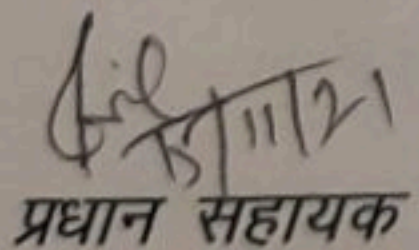 15/11/21
प्रधान सहायक